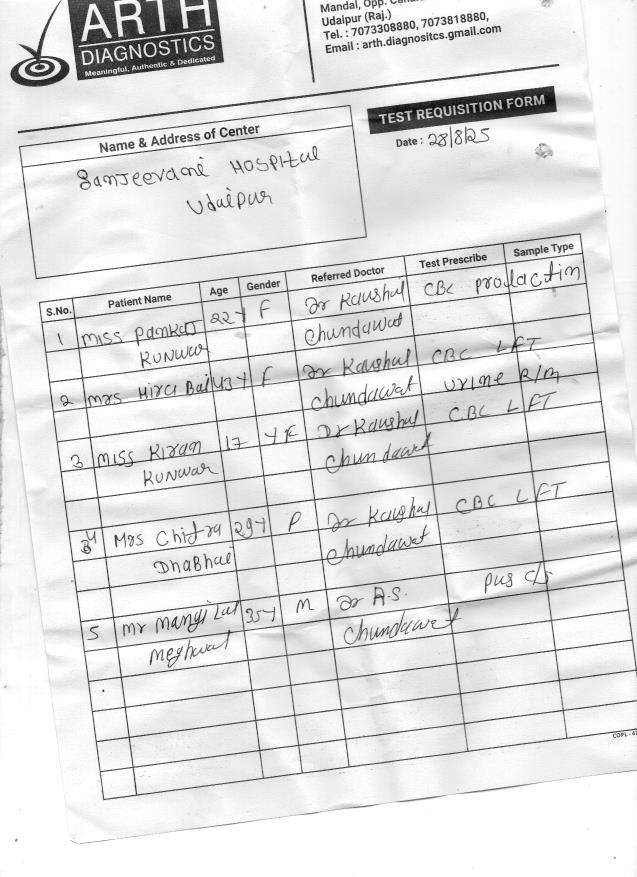 ARTH
DIAGNOSTICS
Meaningful, Authentic & Dedicated
Mandal, Opp.
Udaipur (Raj.)
Tel. : 7073308880, 7073818880,
Email : arth.diagnositcs.gmail.com
TEST REQUISITION FORM
Date : 28/8/25
Name & Address of Center
Sanjeevani HOSPITAL
Udaipur
S.No. Patient Name Age Gender Referred Doctor Test Prescribe Sample Type
1 MISS Pankaj 22Y F Dr Kaushal CBC prolactin
KUNWAR Chundawat
2 Mrs Hira Bai 43Y F Dr Kaushal CBC LFT
Chundawat Urine R/m
3 MISS Kiran 17 Y F Dr Kaushal CBC LFT
KUNWAR Chundawat
4 Mrs Chitra 29Y F Dr Kaushal CBC LFT
Dhabhai Chundawat
5 Mr Mangi Lal 35Y M Dr A.S. Pus c/s
Meghwal Chundawat